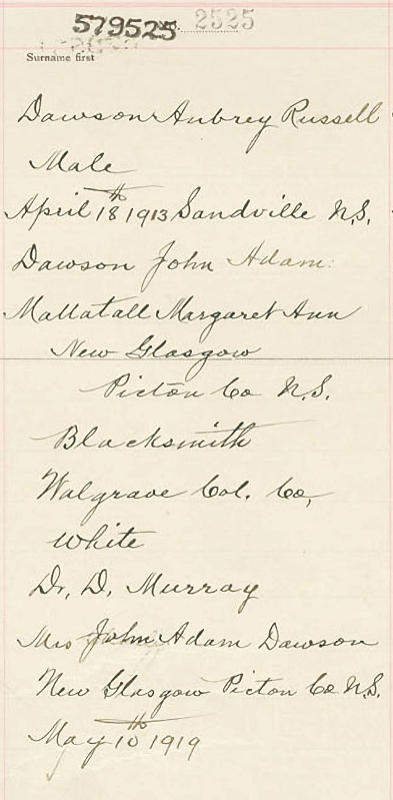 579525
2525
Surname first
Dawson Aubrey Russell
Male
April 18th 1913 Sandville N.S.
Dawson John Adam.
Mallatall Margaret Ann
New Glasgow
Picton Co N.S.
Blacksmith
Walgrave Col. Co,
White
Dr. D. Murray
Mrs John Adam Dawson
New Glasgow Picton Co N.S.
May 10th 1919